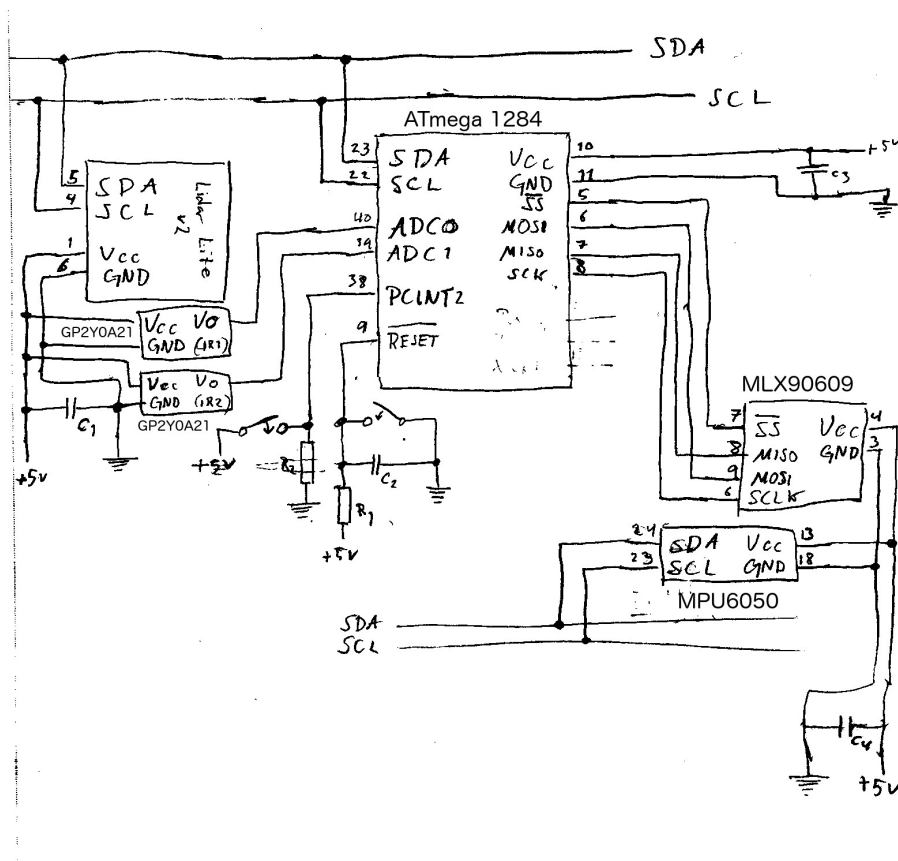 SDA
SCL
ATmega 1284
23 SDA
22 SCL
40 ADC0
39 ADC1
38 PCINT2
9 RESET
VCC 10
GND 11
SS 5
MOSI 6
MISO 7
SCK 8
+5V
C3
5 SDA
4 SCL
1 VCC
6 GND
Lidar Lite
v2
GP2Y0A21
VCC VO
GND (IR1)
VCC VO
GND (IR2)
GP2Y0A21
C1
+5V
+5V
C2
R1
+5V
MLX90609
7 SS
8 MISO
9 MOSI
6 SCLK
VCC 4
GND 3
24 SDA VCC 13
23 SCL GND 18
MPU6050
SDA
SCL
C4
+5V